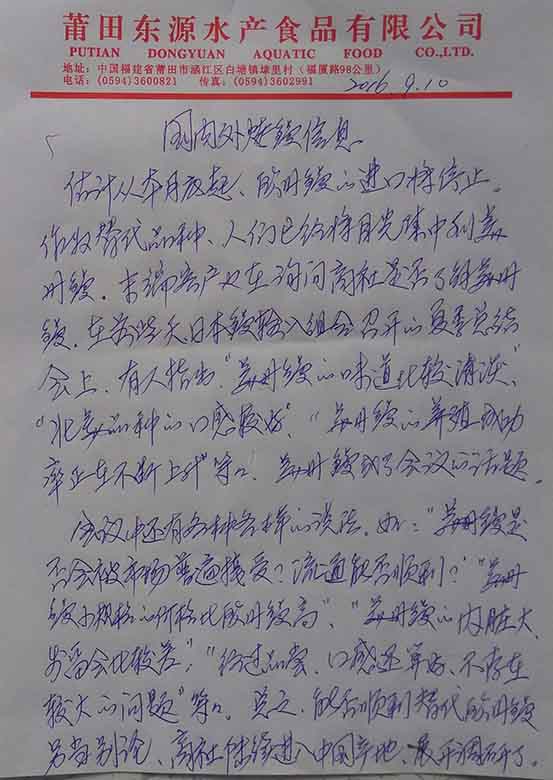 莆田东源水产食品有限公司
PUTIAN DONGYUAN AQUATIC FOOD CO.,LTD.
地址：中国福建省莆田市涵江区白塘镇埭里村（福厦路98公里）
电话：(0594)3600821 传真：(0594)3602991
2016.9.10
国内外烤鳗信息
估计从本月底起、欧州鳗的进口将停止。
作为替代品种、人们已经将目光集中到美
州鳗。末端客户也在询问商社是否了解美州
鳗。在前些天日本鳗输入组合召开的夏季总结
会上、有人指出"美州鳗的味道比较清淡"、
"北美品种的口感较好"、"美州鳗的养殖成功
率正在不断上升"等等、美州鳗成了会议的话题。
会议中还有各种各样的说法。如："美州鳗是
否会被市场普遍接受？流通能否顺利？""美州
鳗小规格的价格比欧州鳗高"、"美州鳗的内脏大、
步留会比较差"；"经过品尝、口感还算好、不存在
较大的问题"等等。总之、能否顺利替代欧州鳗
另当别论、商社陆续进入中国产地、展开调研了。